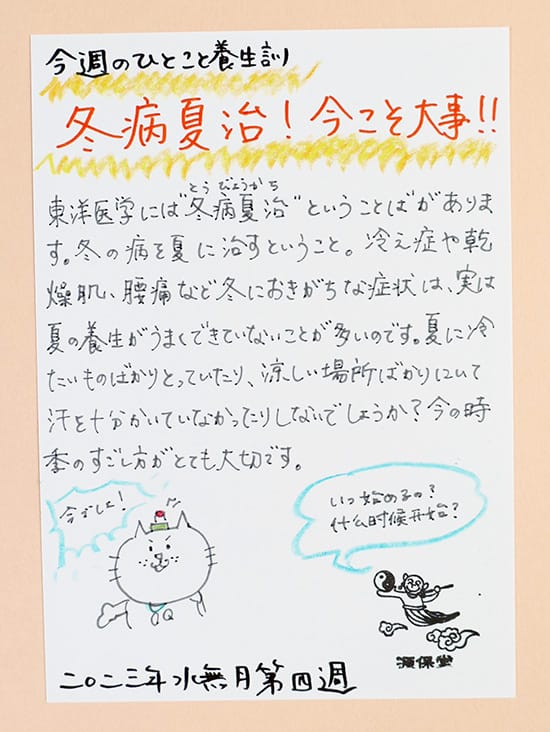 今週のひとこと養生訓
冬病夏治！今こそ大事!!
とうびょうかち
東洋医学には"冬病夏治"ということばがありま
す。冬の病を夏に治すということ。冷え症や乾
燥肌、腰痛など冬におきがちな症状は、実は
夏の養生がうまくできていないことが多いのです。夏に冷
たいものばかりとっていたり、涼しい場所ばかりにいて
汗を十分かいていなかったりしないでしょうか？今の時
季のすごし方がとても大切です。
今でしょ！
いつ始めるの？
什么时候开始？
源保堂
二〇二三年水無月第四週